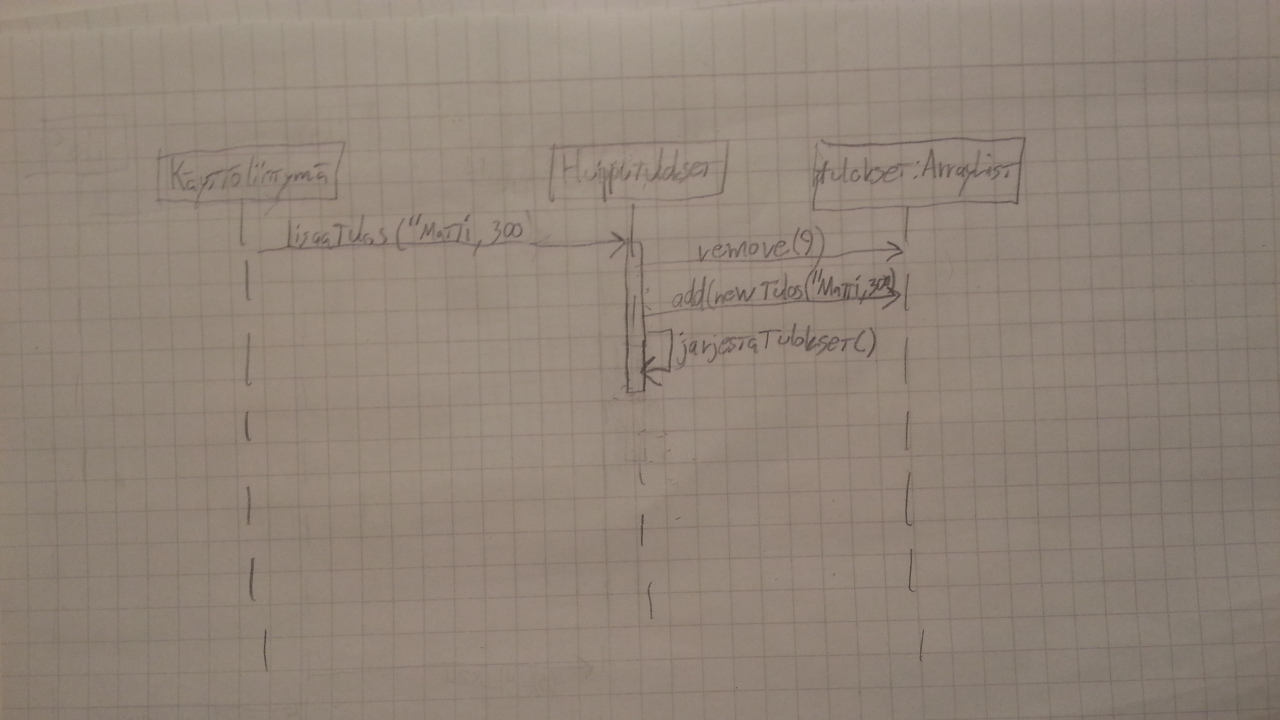 Käyttöliittymä
Huipputulokset
tulokset:ArrayList
lisaaTulos("Matti, 300
remove(9)
add(new Tulos("Matti,300)
jarjestaTulokset()